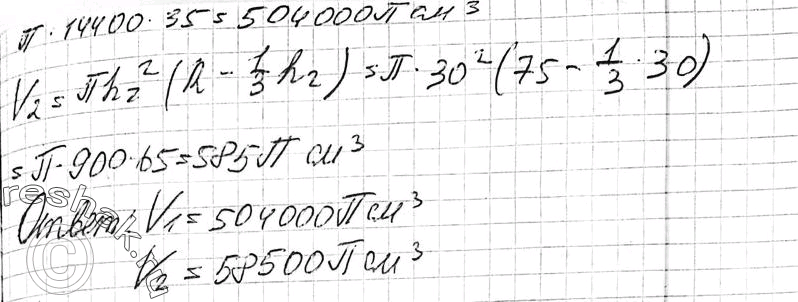 П · 14400 · 35 = 504000П см³
V₂ = Пh₂²(R - 1/3 h₂) = П · 30²(75 - 1/3 · 30)
= П · 900 · 65 = 585П см³
Ответ: V₁ = 504000П см³
V₂ = 58500П см³